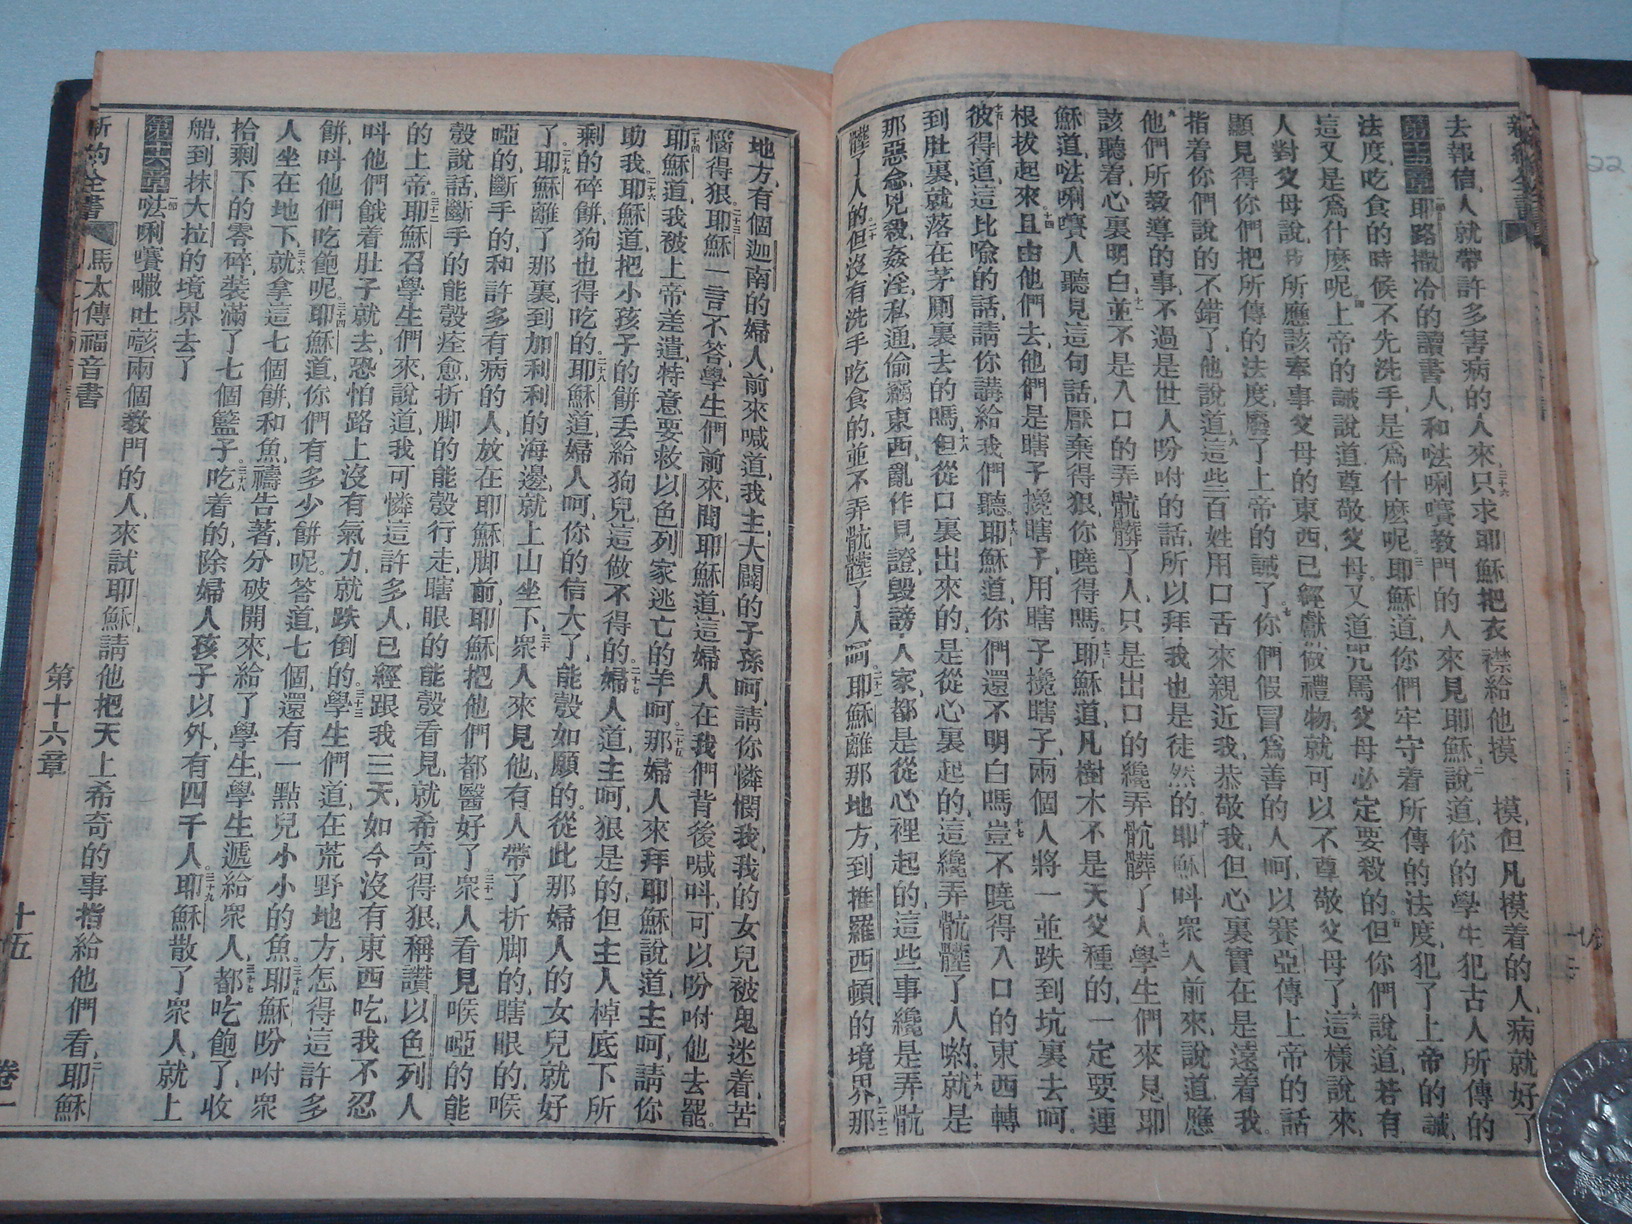 去報信、人就帶許多害病的人來、三十六只求耶穌把衣襟給他摸 摸、但凡摸着的人病就好了
第十五章一節耶路撒冷的讀書人和呿唎㘔教門的人來見耶穌、說道、你的學生犯古人所傳的
法度、吃食的時候不先洗手、是爲什麽呢、三耶穌道、你們牢守着所傳的法度、犯了上帝的誡、
這又是爲什麽呢、四上帝的誡說道、尊敬父母。又道、咒罵父母、必定要殺的。五但你們說道、若有
人對父母說、我所應該奉事父母的東西、已經獻做禮物、就可以不尊敬父母了、六這樣說來、
顯見得你們把所傳的法度、廢了上帝的誡了。七你們假冒爲善的人呵、以賽亞傳上帝的話
指着你們說的不錯了。他說道、八這些百姓用口舌來親近我、恭敬我、但心裏實在是遠着我。
他九們所敎導的事、不過是世人吩咐的話、所以拜我也是徒然的。十耶穌叫衆人前來、說道、應
該聽着、心裏明白。十一並不是入口的弄骯髒了人、只是出口的纔弄骯髒了人。十二學生們來見耶
穌、道、呿唎㘔人聽見這句話、厭棄得狠、你曉得嗎。十三耶穌道、凡樹木不是天父種的、一定要連
根拔起來。十四且由他們去、他們是瞎子攙瞎子、用瞎子攙瞎子、兩個人將一並跌到坑裏去呵。
十五彼得道、這比喻的話、請你講給我們聽。十六耶穌道、你們還不明白嗎。十七豈不曉得入口的東西、轉
到肚裏、就落在茅厠裏去的嗎。十八但從口裏出來的、是從心裏起的、這纔弄骯髒了人喲。十九就是
那惡念、兇殺、姦淫、私通、偷竊東西、亂作見證、毀謗人家、都是從心裡起的、這些事纔是弄骯
髒了人的。二十但沒有洗手吃食的、並不弄骯髒了人呵。二十一耶穌離那地方、到推羅西頓的境界、二十二那
地方、有個迦南的婦人、前來喊道、我主、大闢的子孫呵、請你憐憫我、我的女兒被鬼迷着、苦
惱得狠。二十三耶穌一言不答、學生們前來問耶穌道、這婦人在我們背後喊叫、可以吩咐他去罷。
二十四耶穌道、我被上帝差遣、特意要救以色列家逃亡的羊呵。二十五那婦人來拜耶穌、說道、主呵、請你
助我。二十六耶穌道、把小孩子的餅、丟給狗兒、這做不得的。二十七婦人道、主呵、狠是的、但主人棹底下所
剩的碎餅、狗也得吃的。二十八耶穌道、婦人呵、你的信大了、能彀如願的。從此那婦人的女兒就好
了。二十九耶穌離了那裏、到加利利的海邊、就上山坐下。三十衆人來見他、有人帶了折脚的、瞎眼的、喉
啞的、斷手的、和許多有病的人、放在耶穌脚前、耶穌把他們都醫好了。三十一衆人看見喉啞的能
彀說話、斷手的能彀痊愈、折脚的能彀行走、瞎眼的能彀看見、就希奇得狠、稱讚以色列人
的上帝。三十二耶穌召學生們來、說道、我可憐這許多人、已經跟我三天、如今沒有東西吃、我不忍
叫他們餓着肚子就去、恐怕路上沒有氣力、就跌倒的。三十三學生們道、在荒野地方、怎得這許多
餅、叫他們吃飽呢。三十四耶穌道、你們有多少餅呢。答道、七個、還有一點兒小小的魚。三十五耶穌吩咐衆
人坐在地下、三十六就拿這七個餅和魚、禱告著、分破開來、給了學生、學生遞給衆人。三十七都吃飽了、收
拾剩下的零碎、裝滿了七個籃子。三十八吃着的、除婦人孩子以外、有四千人。三十九耶穌散了衆人、就上
船、到抹大拉的境界去了
第十六章一節呿唎㘔吐兩個教門的人、來試耶穌、請他把天上希奇的事、指給他們看、二耶穌
新約全書 馬太傳福音書 第十六章 十五 卷一